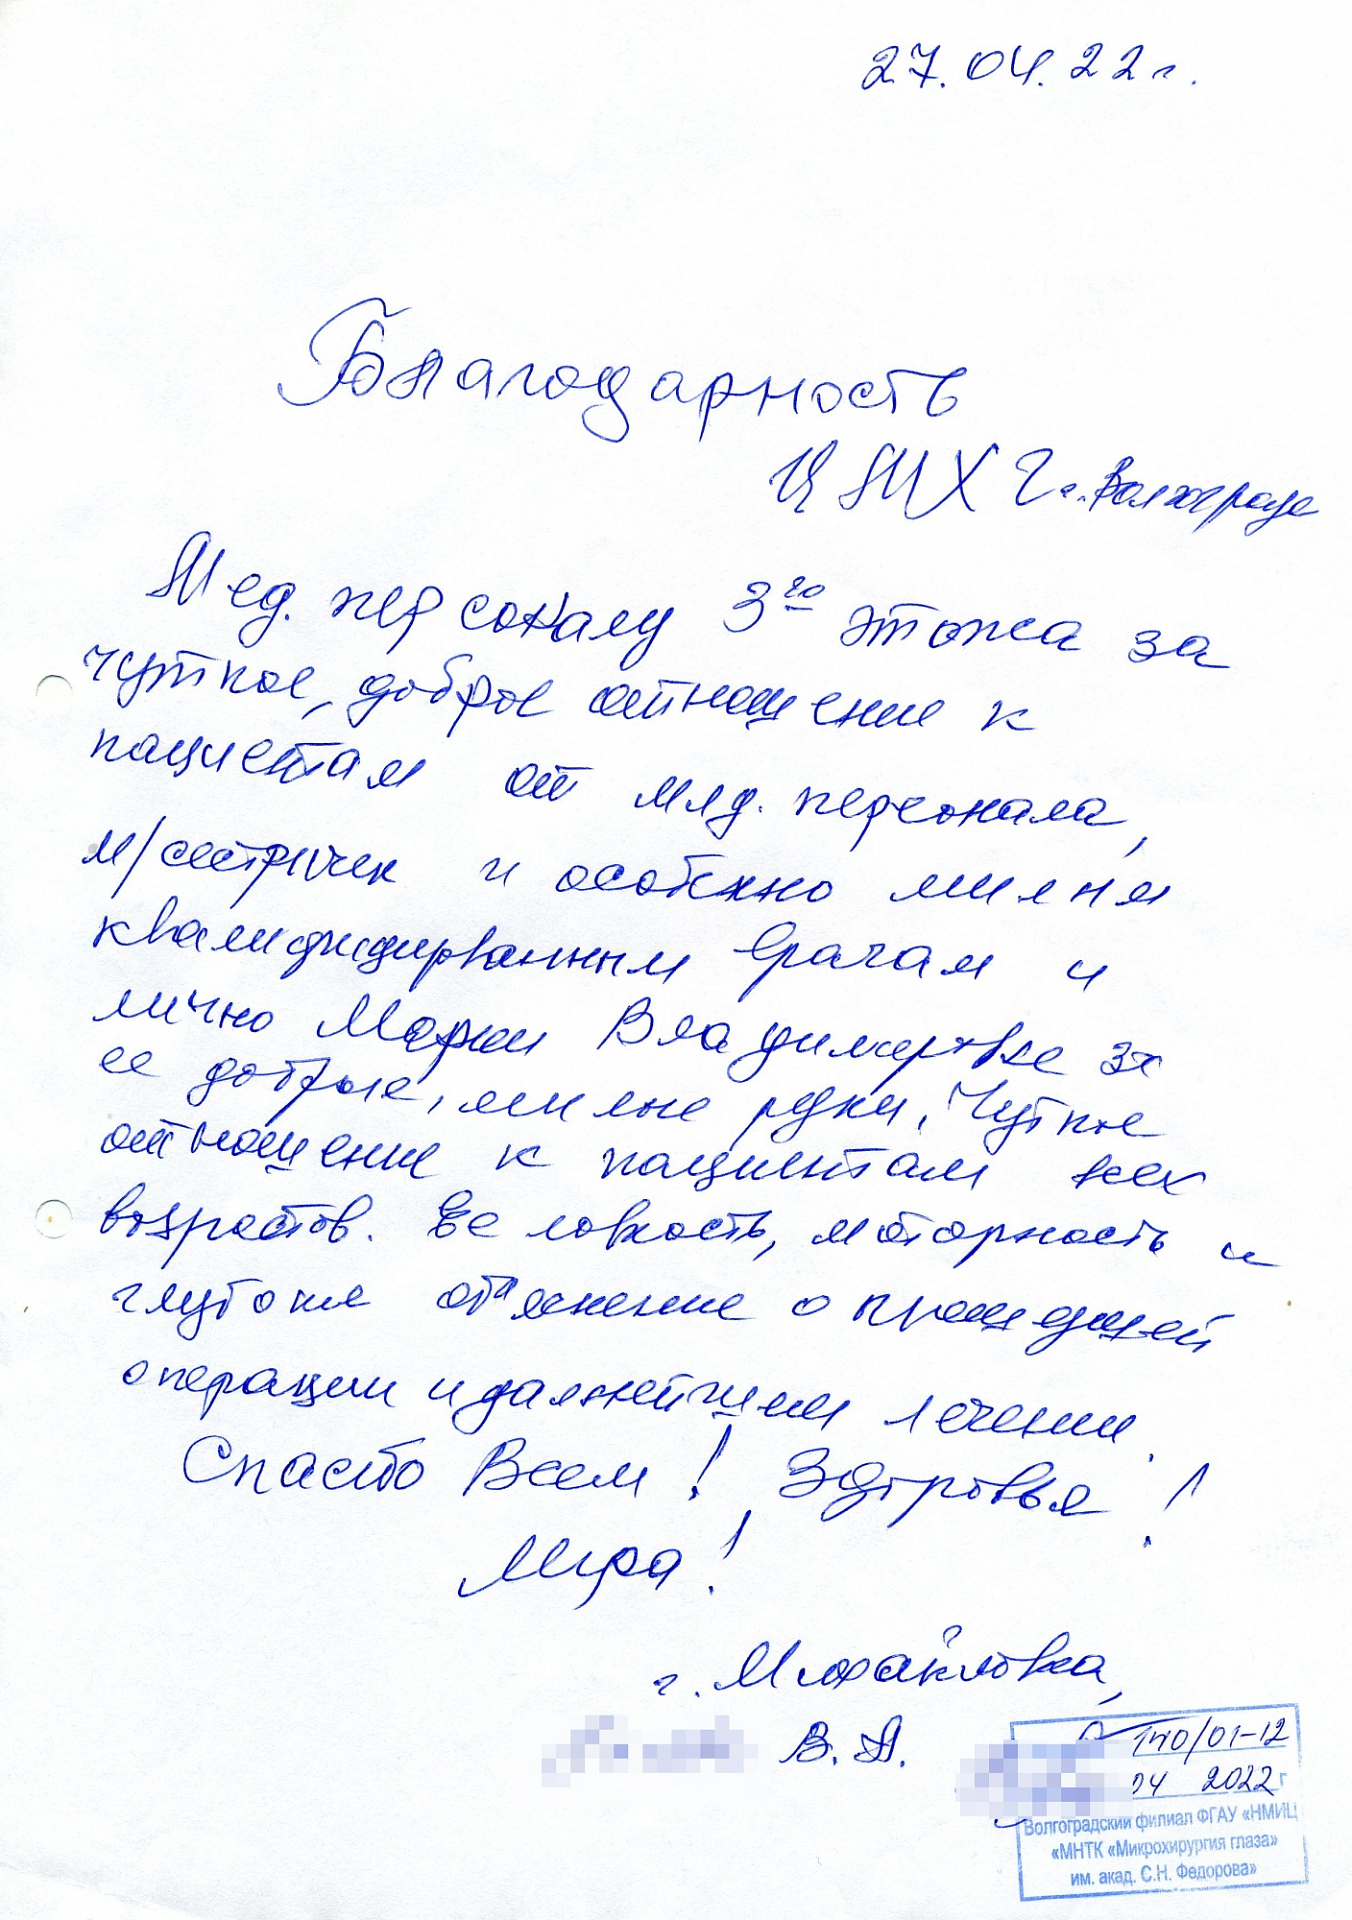 27.04.22 г.
Благодарность
ЦМХГ г. Волгограда
Мед. персоналу 3го этажа за
чуткое, доброе отношение к
пациентам от млд. персонала,
м/сестричек и особенно милым
квалифицированным врачам и
лично Марии Владимировне за
ее добрые, милые руки. Чуткое
отношение к пациентам всех
возрастов. Ее ловкость, моторность и
глубокие объяснение о прошедшей
операции и дальнейшем лечении.
Спасибо Всем! Здоровья!
Мира!
г. Михайловка,
В. А.
140/01-12
04 2022 г
Волгоградский филиал ФГАУ «НМИЦ
«МНТК «Микрохирургия глаза»
им. акад. С.Н. Федорова»